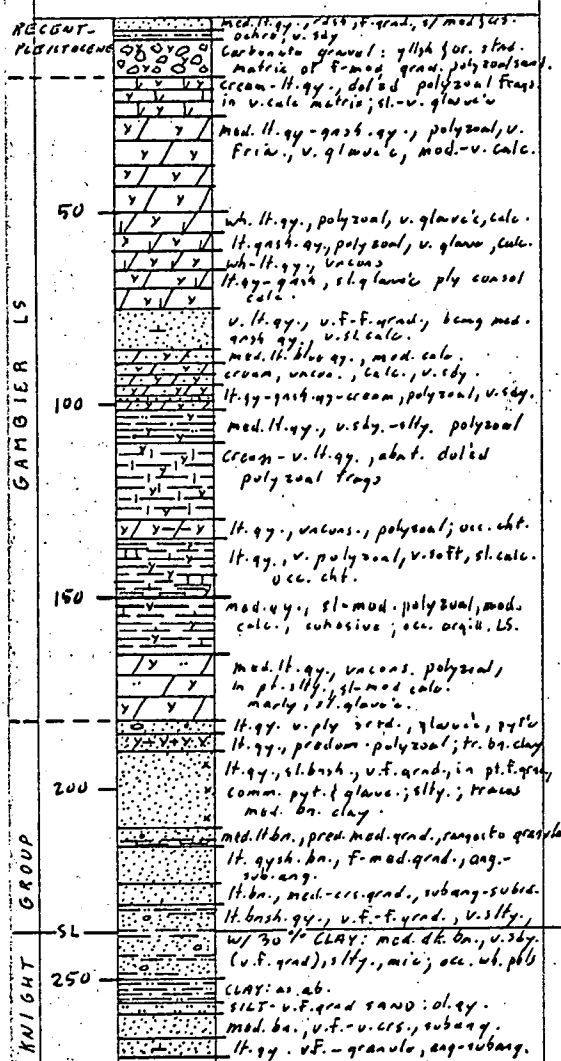 RECENT-
PLEISTOCENE
GAMBIER LS
KNIGHT GROUP
50
100
150
200
SL
250
med.lt.gy., rdsh, f.grnd, s/ mod fus.
ochre, v. sdy
Carbonate gravel: yllsh & or. stnd.
matrix of f-mod. grnd. polyzoal sand.
cream-lt.gy., dol'zd polyzoal frags
in v.calc matrix; sl.-v. glauc'c
med. lt. gy-gnsh.gy., polyzoal, v.
friab., v. glauc'c, mod.-v. calc.
wh. lt.gy., polyzoal, v. glauc'c, calc.
lt.gnsh.gy., polyzoal, v. glauc, calc.
wh-lt.gy., uncons
lt.gy-gnsh, sl.glauc'c ply consol
calc.
v.lt.gy., v.f-f.grnd., bcmg med.
gnsh gy., v.sl.calc.
med. lt. blue gy., mod. calc.
cream, uncon., calc., v. sdy.
lt.gy-gnsh.gy-cream, polyzoal, v.sdy.
med.lt.gy., v.sdy.-slty. polyzoal
cream-v.lt.gy., abnt. dol'zd
polyzoal frags
lt.gy., uncons., polyzoal; occ. cht.
lt.gy., v.polyzoal, v.soft, sl.calc.
occ. cht.
med.gy., sl-mod. polyzoal, mod.
calc., cohesive; occ. argill. LS.
med.lt.gy., uncons. polyzoal,
in pt. slty., sl-mod calc.
marly, sl.glauc'c.
lt.gy. v.ply srtd., glauc'c, pyt'c
lt.gy., predom. polyzoal; tr. bn. clay
lt.gy., sl.bnsh., v.f.grnd., in pt.f.grnd,
comm. pyt. & glauc.; slty.; traces
med. bn. clay.
med.lt.bn., pred. med.grnd., ranges to granule
lt. gysh. bn., f-med.grnd., ang.-
sub.ang.
lt.bn., med-crs.grnd., subang-subrd.
lt.bnsh.gy., v.f-f.grnd., v.slty.,
w/ 30% CLAY: med.dk.bn., v.sdy.
(v.f.grnd), slty., mic; occ. wh. pbls
CLAY: as ab.
SILT-v.f.grnd SAND: ol.gy.
med. bn., v.f.-v.crs., subang.
lt.gy. v.f.-granule, ang-subang.